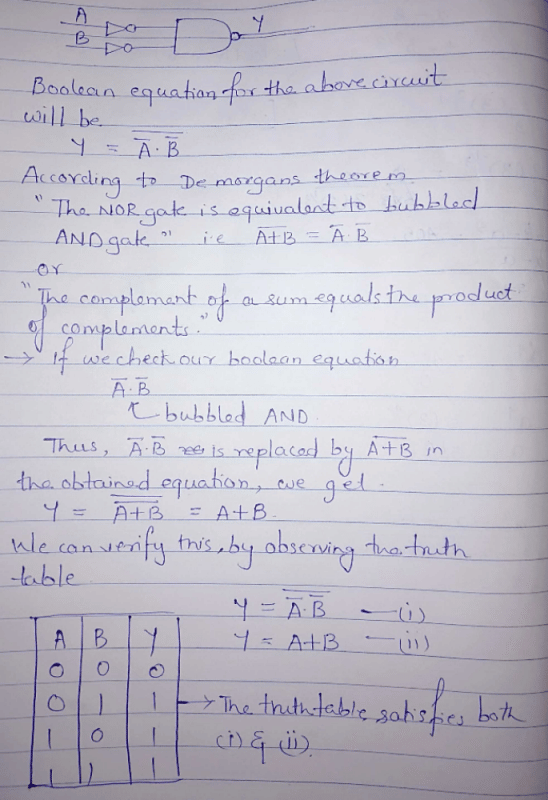 A
B
Y
Boolean equation for the above circuit
will be
Y = \overline{\overline{A}·\overline{B}}
According to De morgans theorem
"The NOR gate is equivalent to bubbled
AND gate" i.e \overline{A+B} = \overline{A}·\overline{B}
or
"The complement of a sum equals the product
of complements."
→ If we check our boolean equation
\overline{A}·\overline{B}
bubbled AND
Thus, \overline{A}·\overline{B} is replaced by \overline{A+B} in
the obtained equation, we get.
Y = \overline{\overline{A+B}} = A+B.
We can verify this, by observing the truth
table
Y = \overline{\overline{A}·\overline{B}} —(i)
Y = A+B —(ii)
A B Y
0 0 0
0 1 1 → The truth table satisfies both
1 0 1 (i) & (ii).
1 1 1